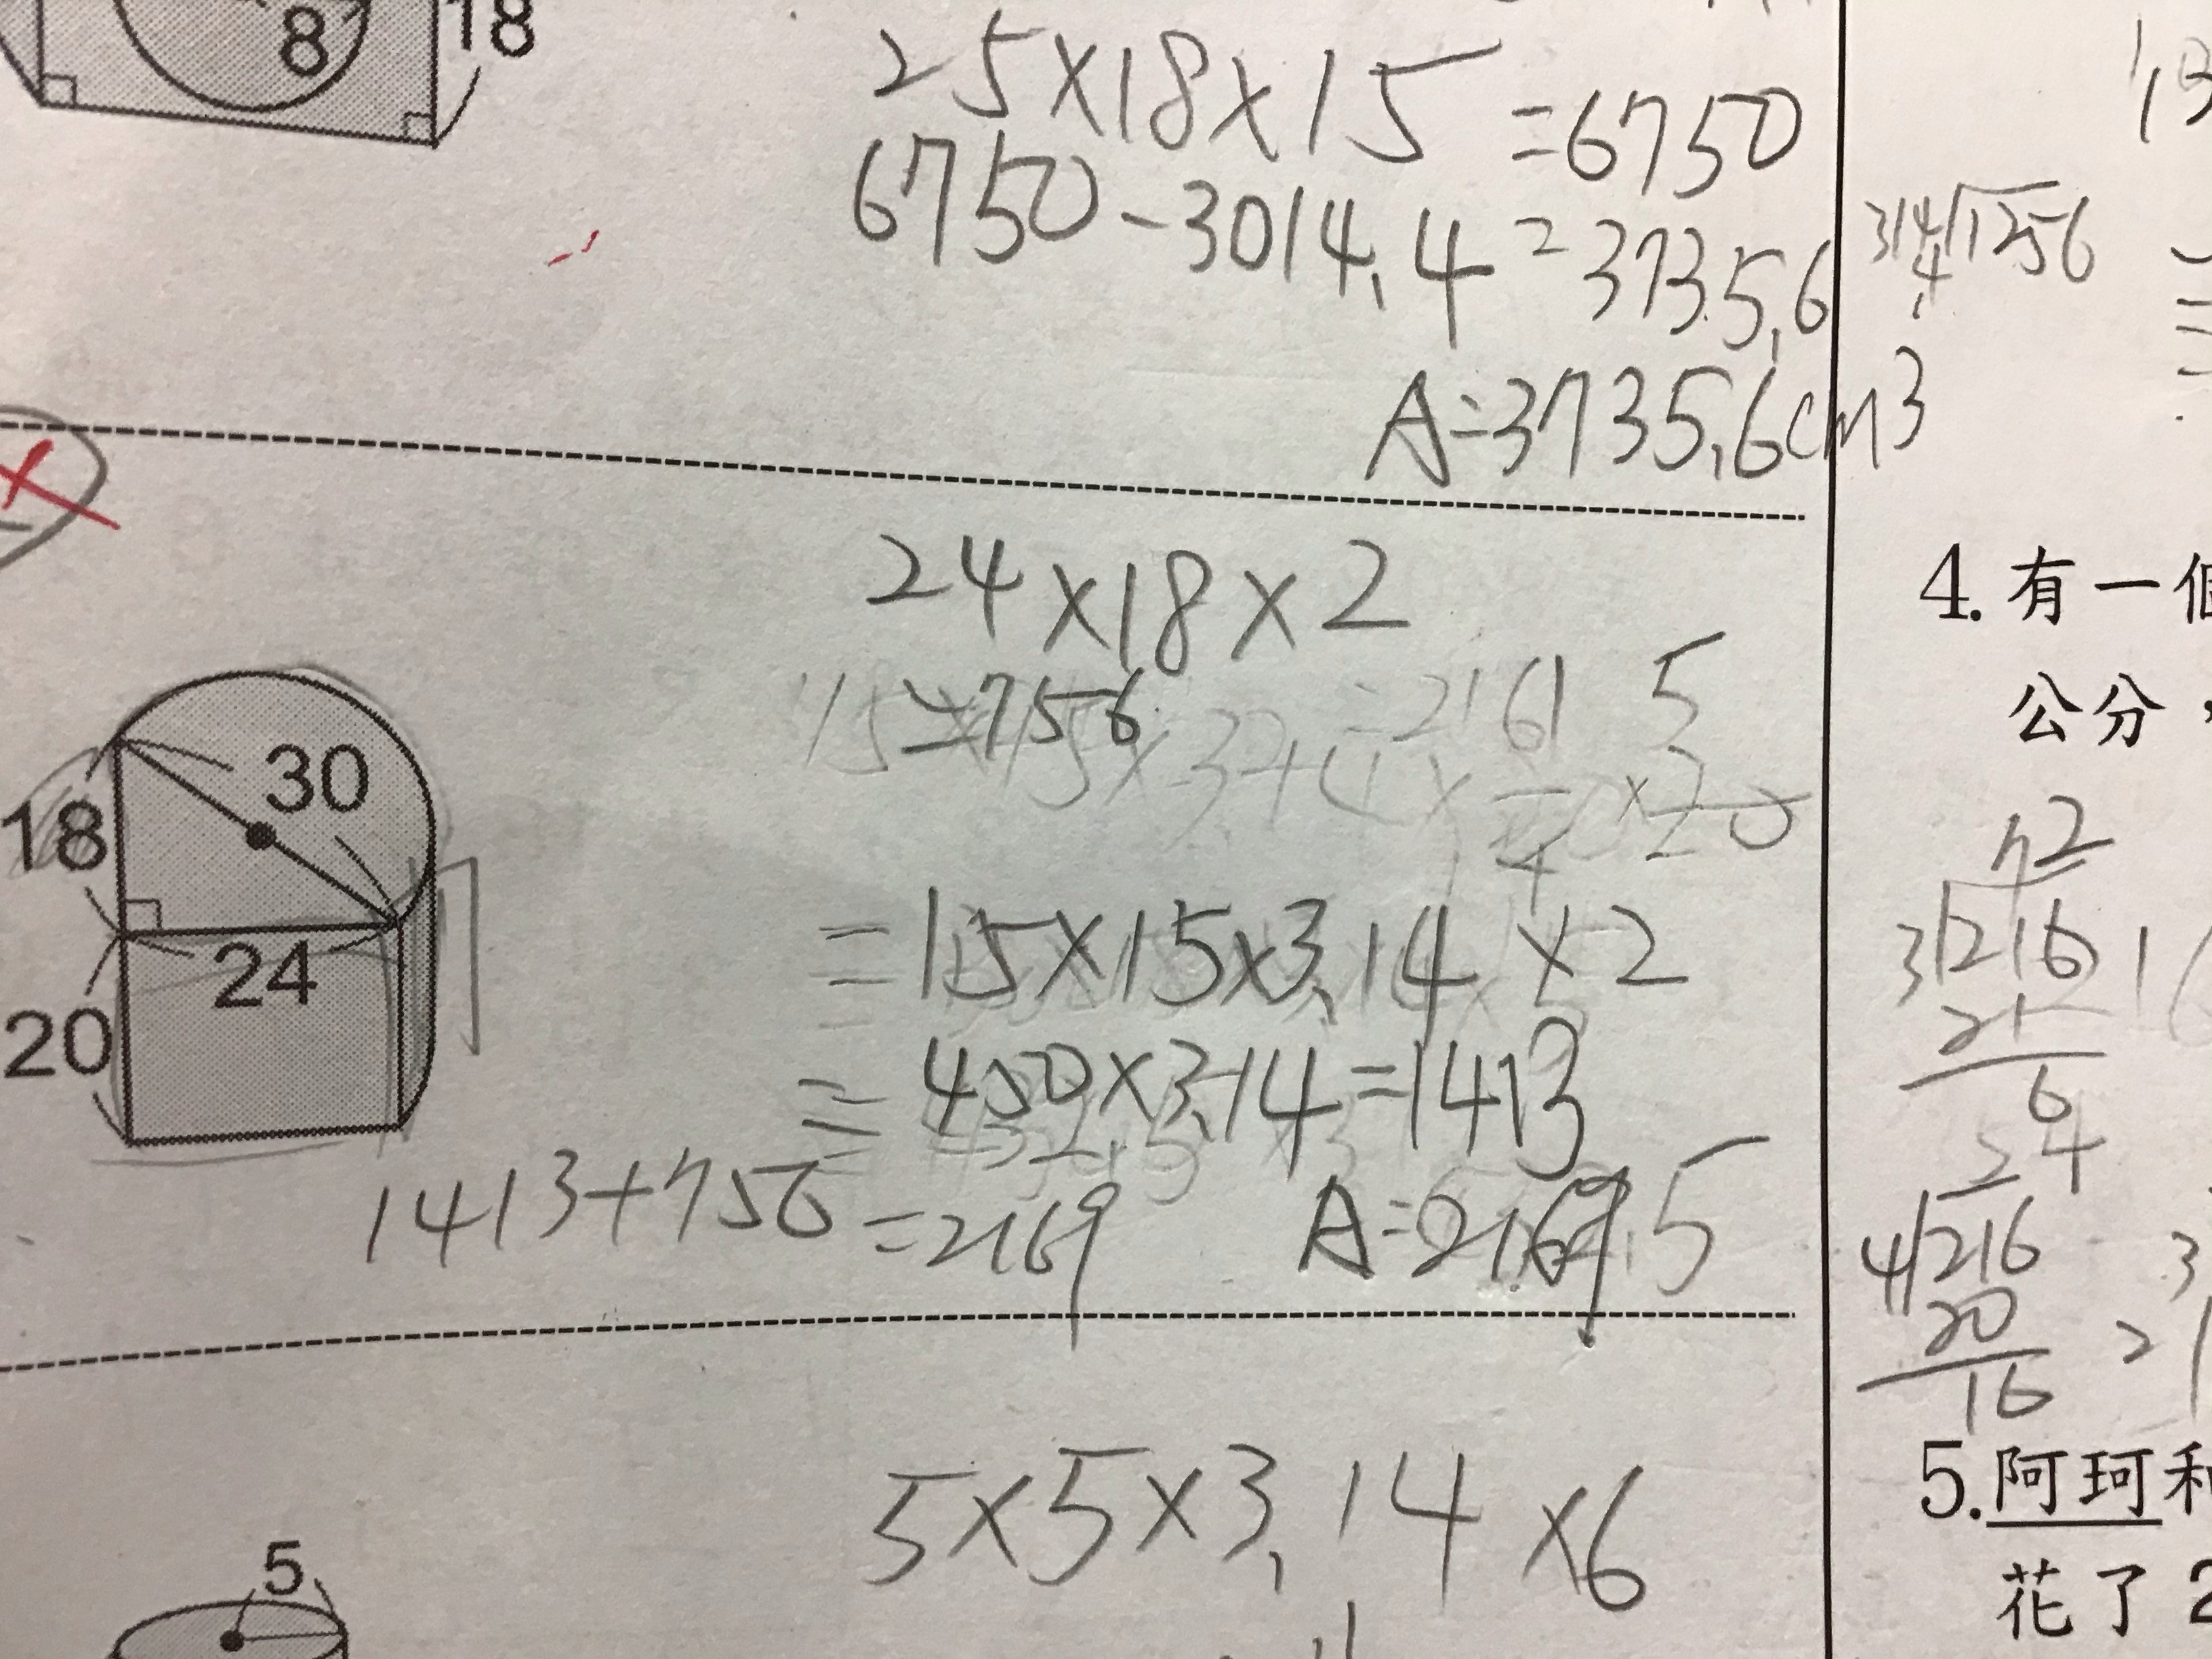 8
18
25×18×15=6750
6750-3014.4=3735.6
A=3735.6cm3
314√1256
4
24×18×2
=756
30
18
24
20
=15×15×3.14×2
=450×3.14=1413
1413+756
=2169
A=2169.5
5×5×3.14×6
5
4.有一個
公分，
72
3√216
21
6
24
4√216
20
16
5.阿珂和
花了2